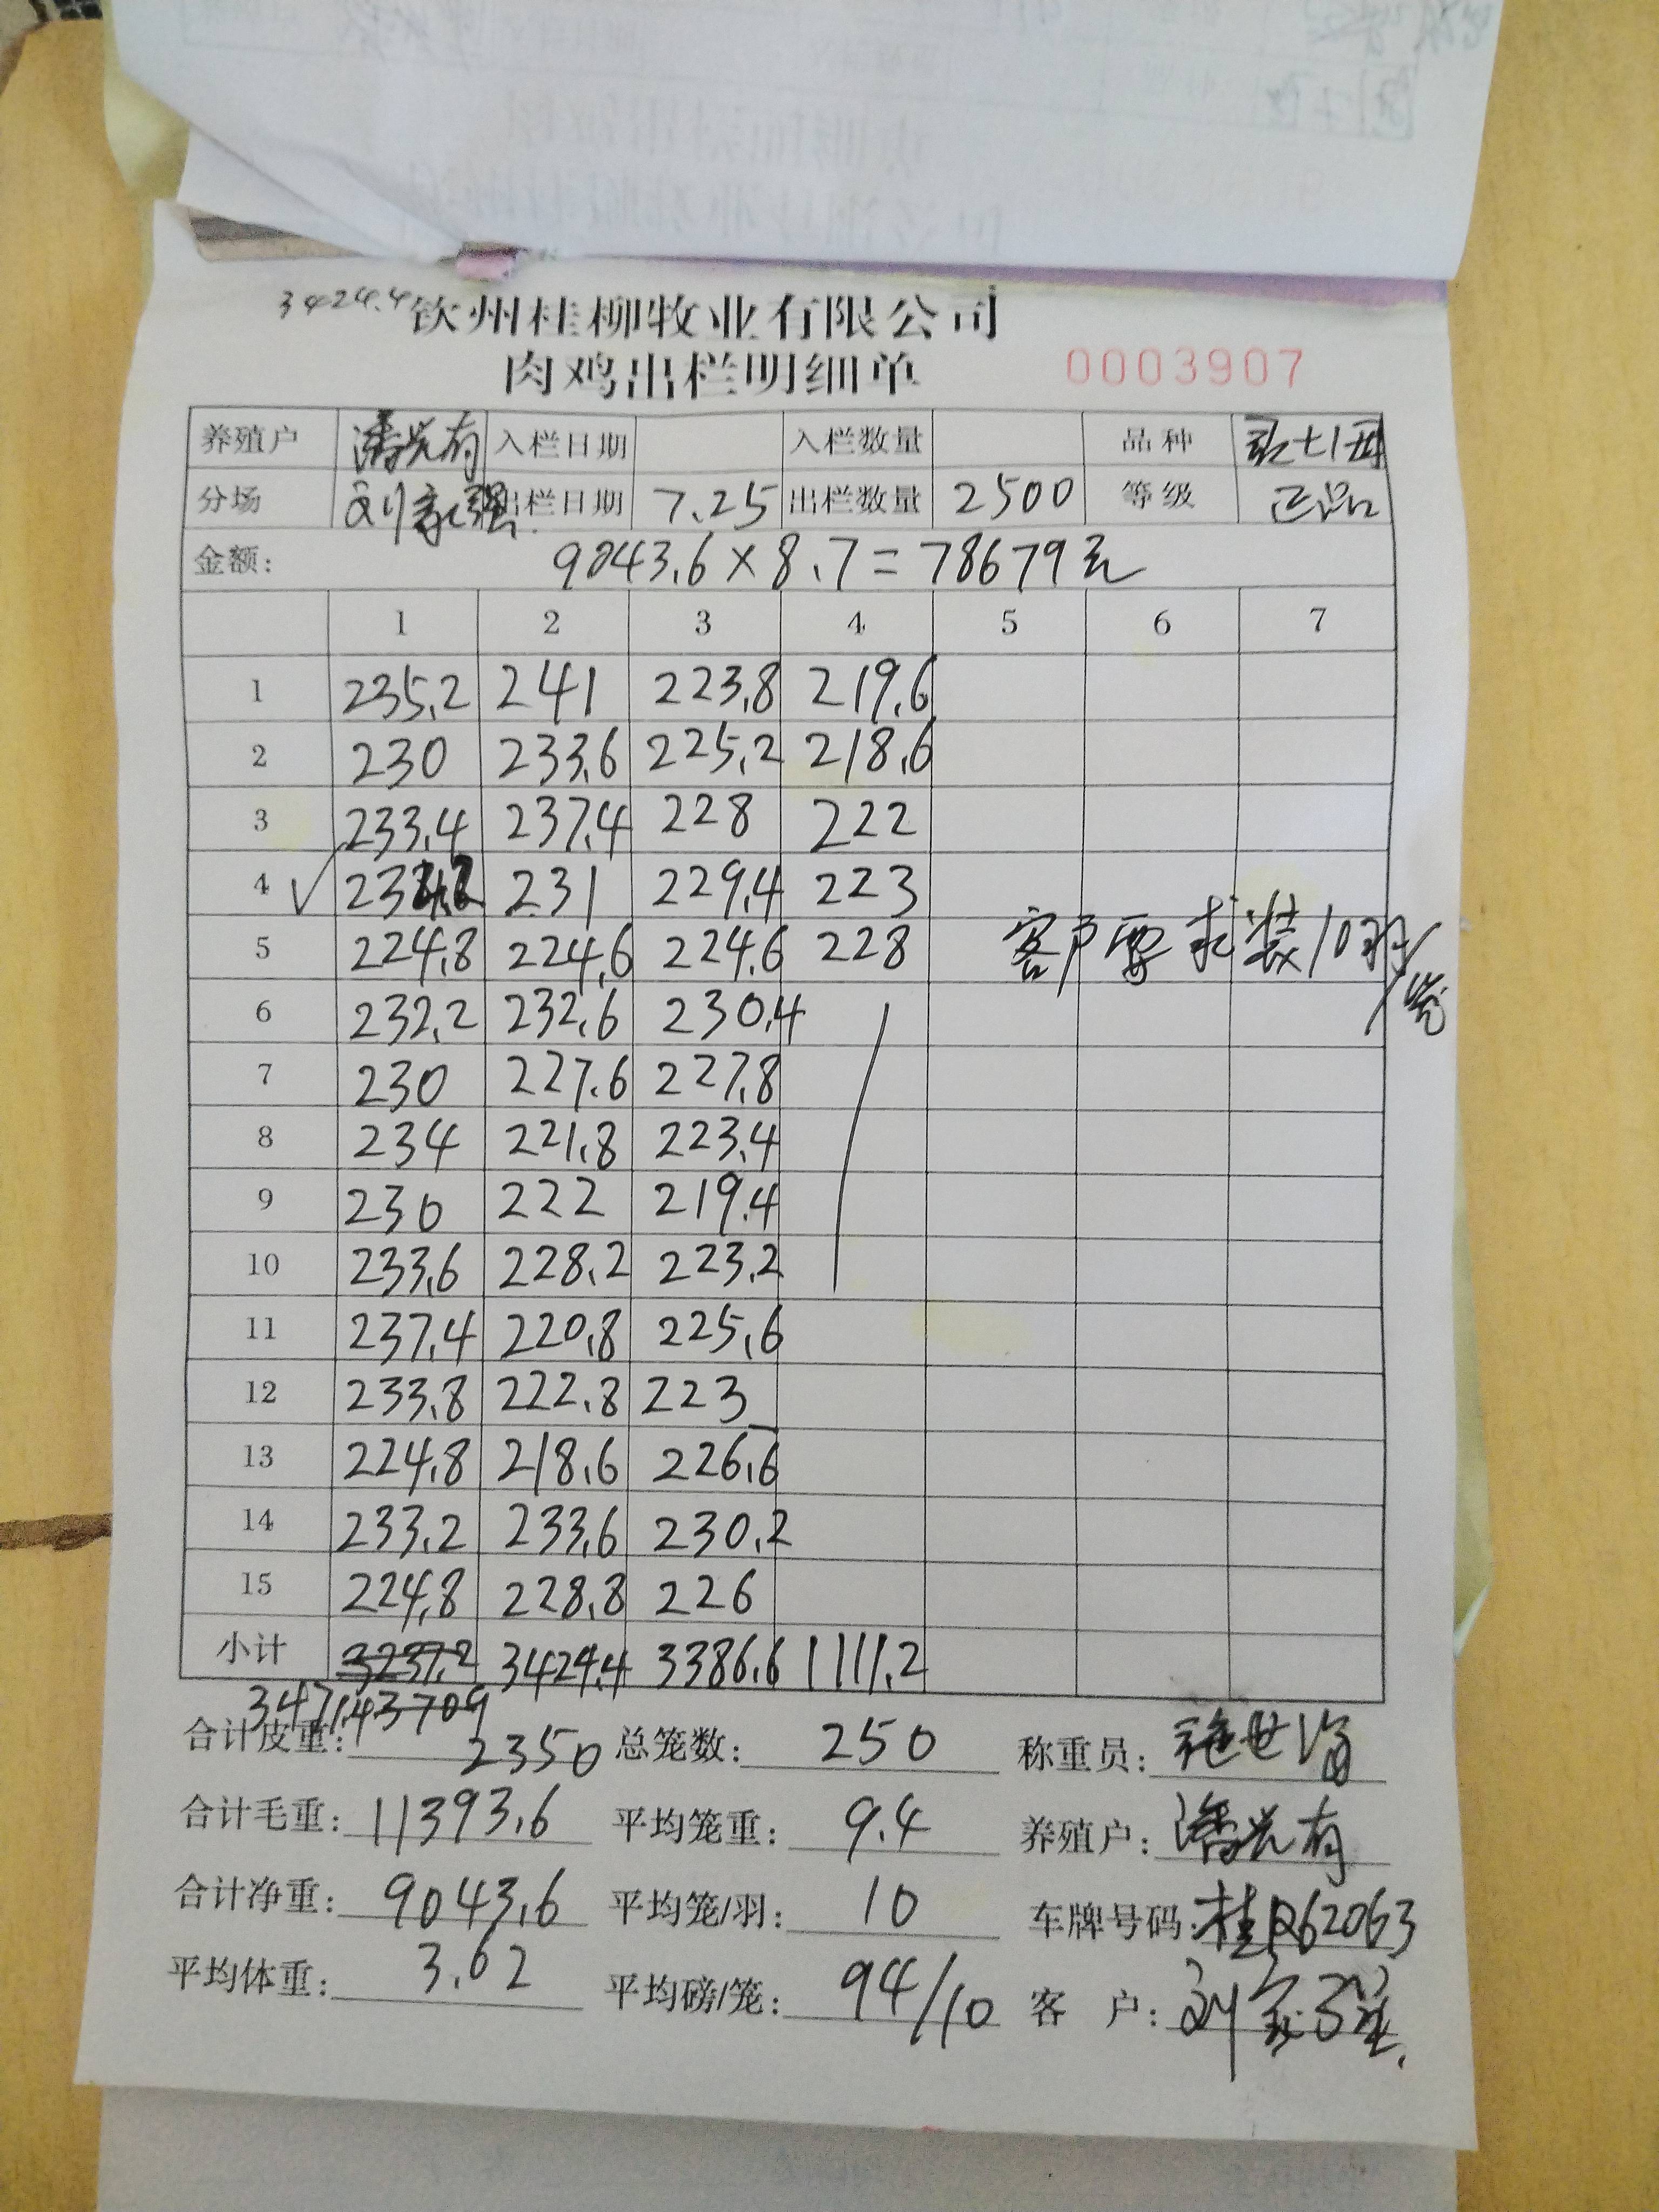 3424.4 钦州桂柳牧业有限公司
肉鸡出栏明细单 0003907
养殖户 潘兴有 入栏日期 入栏数量 品种
分场 刘家强 出栏日期 7.25 出栏数量 2500 等级 正品
金额: 9043.6×8.7=78679元
1 2 3 4 5 6 7
1 235.2 241 223.8 219.6
2 230 233.6 225.2 218.6
3 233.4 237.4 228 222
4 √ 231 229.4 223
5 224.8 224.6 224.6 228 客户要求装10羽/笼
6 232.2 232.6 230.4
7 230 227.6 227.8
8 234 221.8 223.4
9 230 222 219.4
10 233.6 228.2 223.2
11 237.4 220.8 225.6
12 233.8 222.8 223
13 224.8 218.6 226.6
14 233.2 233.6 230.2
15 224.8 228.8 226
小计 3237.2 3424.4 3386.6 1111.2
3471.4 3709
合计皮重: 2350 总笼数: 250 称重员:
合计毛重: 11393.6 平均笼重: 9.4 养殖户: 潘兴有
合计净重: 9043.6 平均笼/羽: 10 车牌号码: 桂R62063
平均体重: 3.62 平均磅/笼: 94/10 客 户: 刘家强